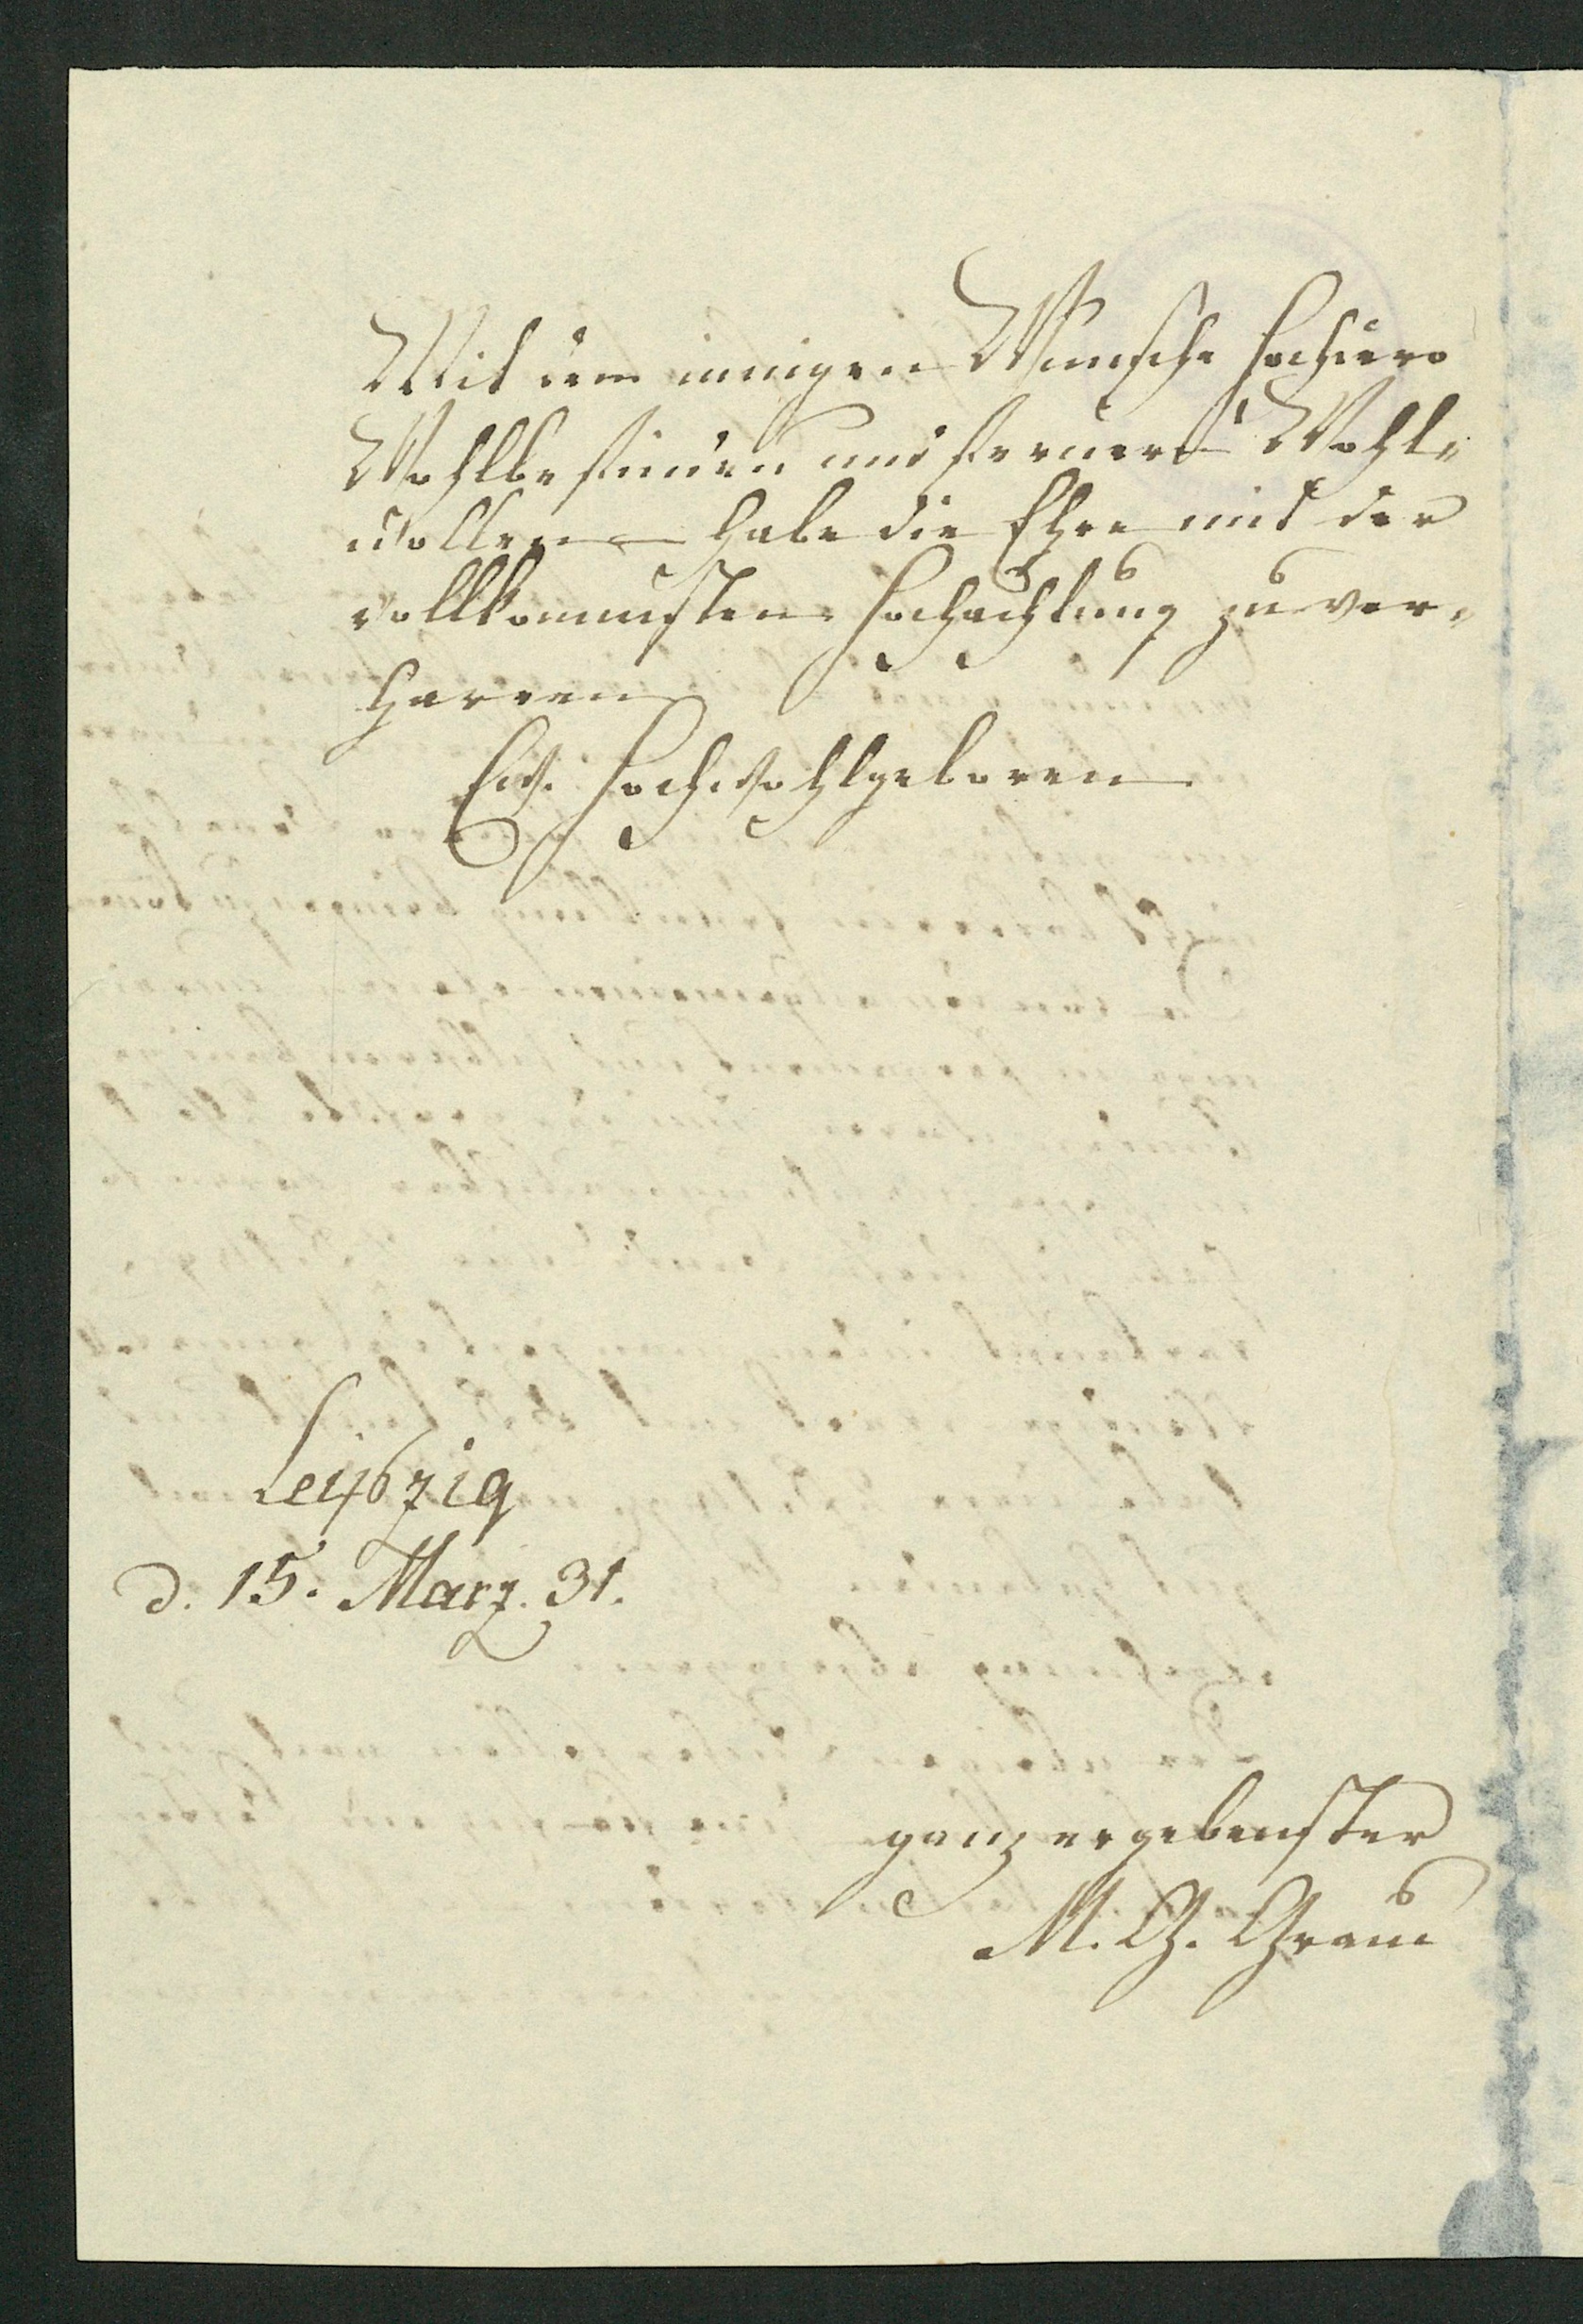 Mit dem innigen Wunsche hochdero
Wohlbefinden und fernern Wohl-
wollen habe die Ehre mit der
vollkommsten Hochachtung zu ver-
harren
Ew. Hochwohlgeboren
Leipzig
d. 15. Marz. 31.
ganz ergebenster
M. G. Grau